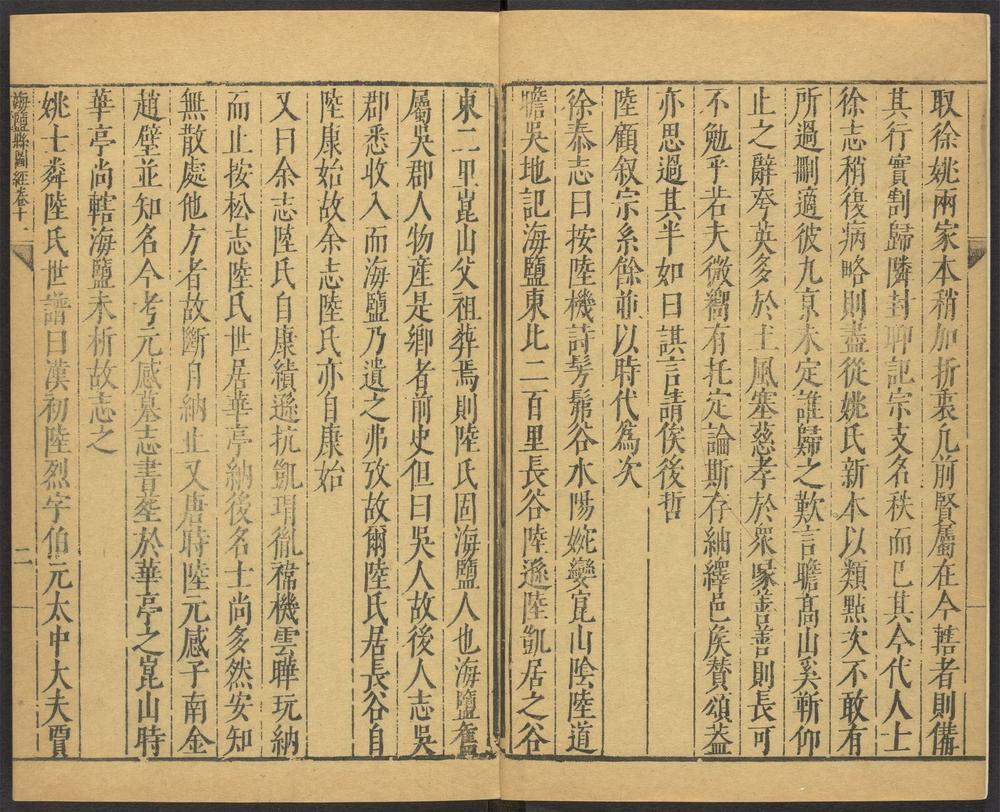 取徐姚兩家本稍加折衷凢前賢屬在今轄者則備
其行實割歸隣封聊記宗支名秩而已其今代人士
徐志稍後病略則盡從姚氏新本以類㸃次不敢有
所過刪適彼九京未定誰歸之歎言瞻髙山奚斬仰
止之辭夸英多於土風塞慈孝於衆喙善善則長可
不勉乎若夫微嚮有托定論斯存紬繹邑矦賛頌葢
亦思過其半如曰諆言請俟後哲
陸顧叙宗系餘並以時代爲次
徐泰志曰按陸機詩髣髴谷水陽婉孌崑山陰陸道
瞻吳地記海鹽東北二百里長谷陸遜陸凱居之谷
東二里崑山父祖葬焉則陸氏固海鹽人也海鹽舊
屬吳郡人物産是郷者前史但曰吳人故後人志吳
郡悉收入而海鹽乃遺之弗攷故爾陸氏居長谷自
陸康始故余志陸氏亦自康始
又曰余志陸氏自康績遜抗凱瑁胤褘機雲曄玩納
而止按松志陸氏世居華亭納後名士尚多然安知
無散處他方者故斷自納止又唐時陸元感子南金
趙璧並知名今考元感墓志書葬於華亭之崑山時
華亭尚轄海鹽未析故志之
姚士粦陸氏世譜曰漢初陸烈字伯元太中大夫賈
海鹽縣圖經卷十
二